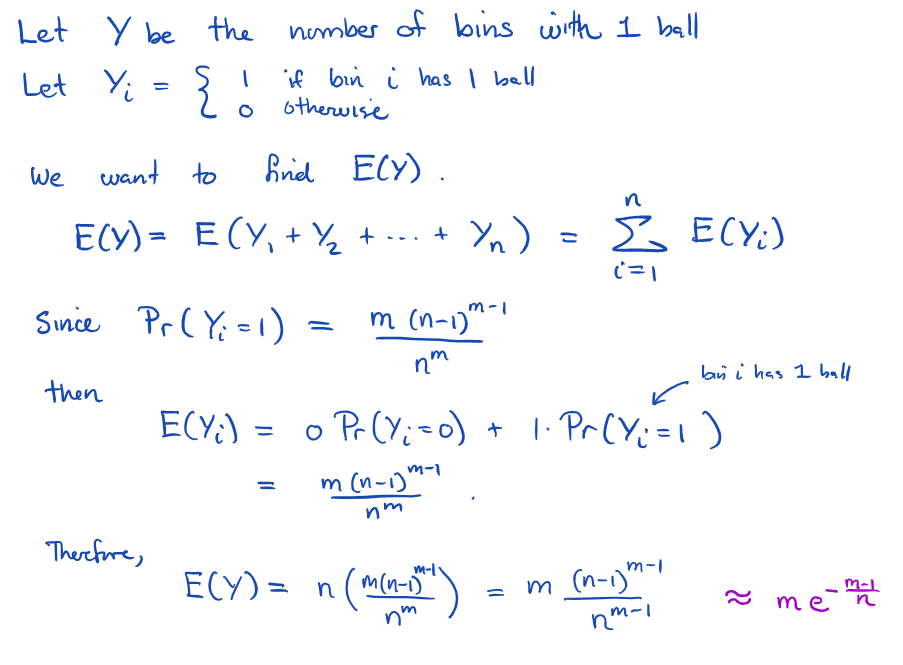 Let Y be the number of bins with 1 ball
Let Yᵢ = { 1 if bin i has 1 ball
0 otherwise
We want to find E(Y).
E(Y) = E(Y₁ + Y₂ + ... + Yₙ) = ∑ᵢ₌₁ⁿ E(Yᵢ)
Since Pr(Yᵢ = 1) = m (n-1)^(m-1) / n^m
bin i has 1 ball
then
E(Yᵢ) = 0 Pr(Yᵢ = 0) + 1· Pr(Yᵢ = 1)
= m (n-1)^(m-1) / n^m .
Therefore,
E(Y) = n (m(n-1)^(m-1) / n^m) = m (n-1)^(m-1) / n^(m-1) ≈ m e^(- (m-1)/n)